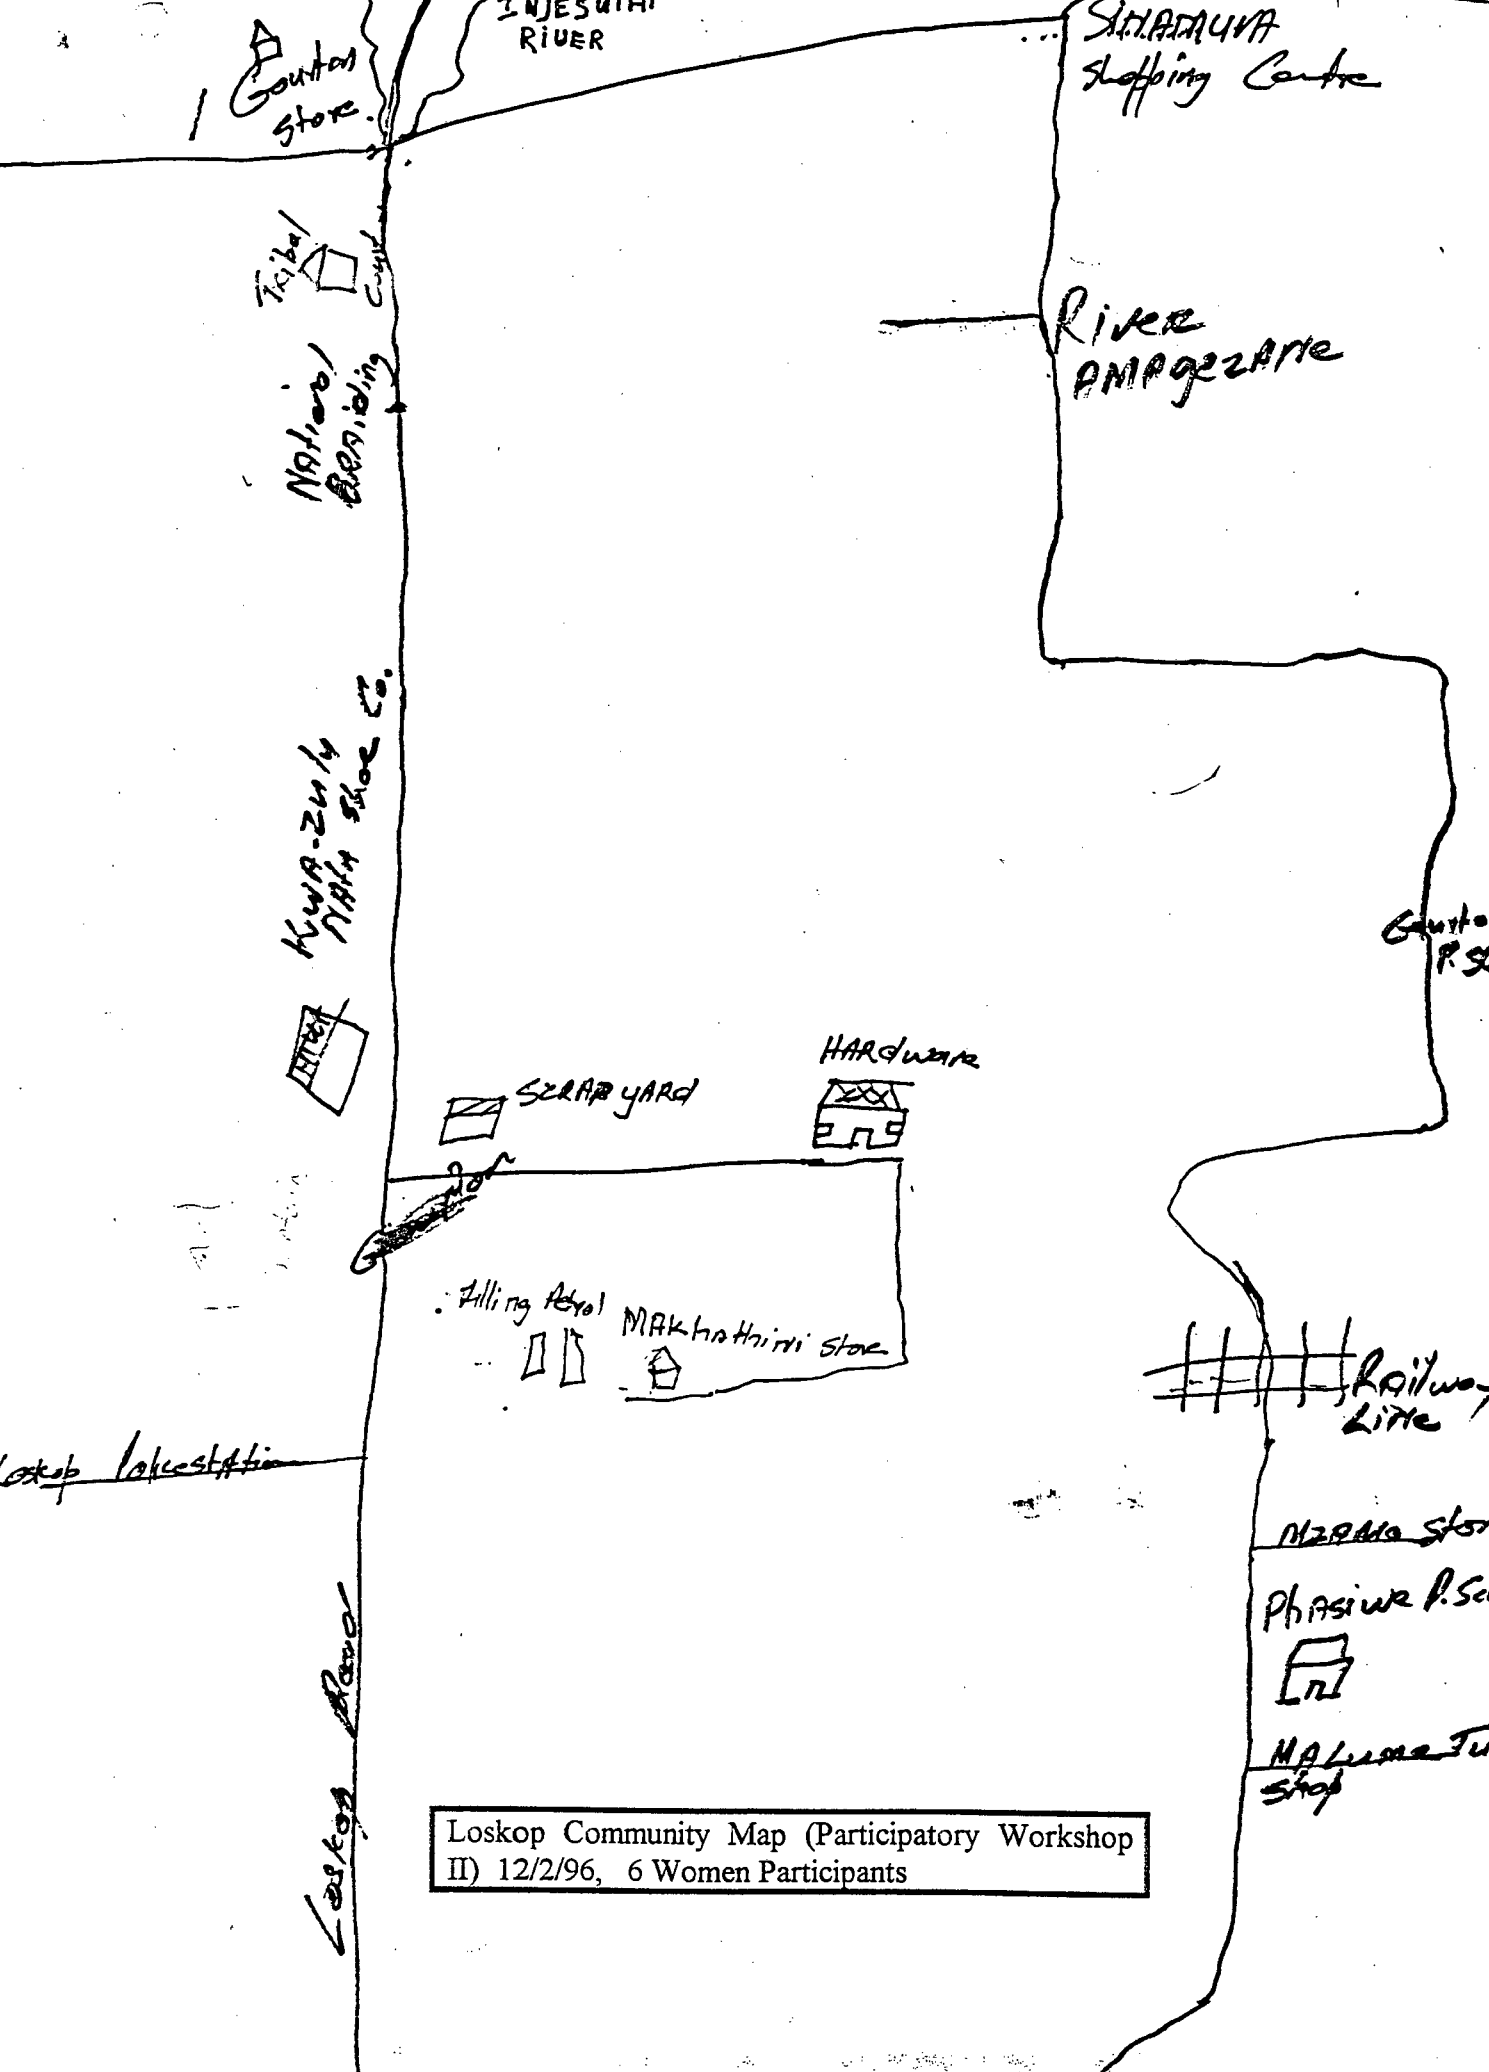 INJESUTHI
RIVER
Gourton
Store
SINAMUVA
Shopping Centre
Tribal
Court
River
AMAgezANe
NAtional
BRAiding
KwA-Zulu
NAtA Shoe Co.
Gourto
P. Sc
HARdware
SCRAP yARd
Filling Petrol
MAKhathini Store
Railway
Line
Loskop PolicestAtion
MZAMo Stor
PhAsiwe P. Sc
MALume Tu
Shop
Loskop Road
Loskop Community Map (Participatory Workshop
II) 12/2/96, 6 Women Participants